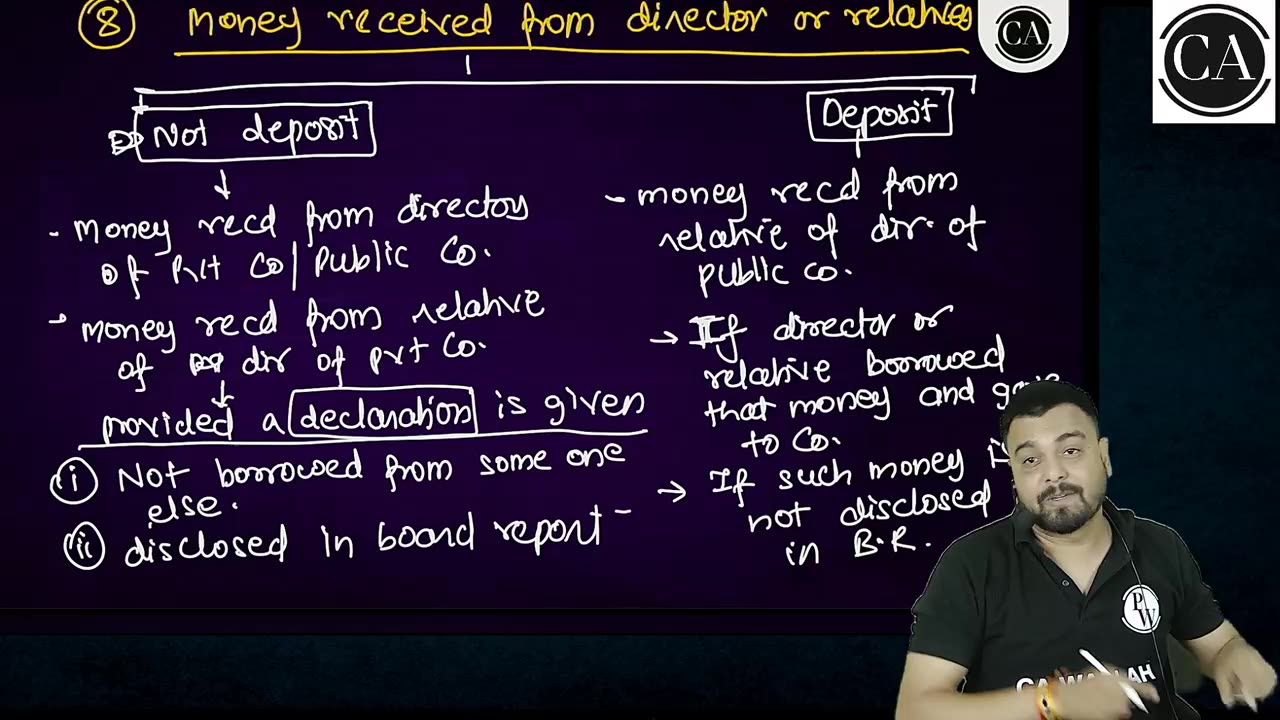 8 Money received from director or relatives
CA
CA
Not deposit
Deposit
- Money recd from director
of Prt Co/Public Co.
- Money recd from relative
of dir of prt Co.
provided a declaration is given
(i) Not borrowed from some one
else.
(ii) disclosed in board report -
- money recd from
relative of dir. of
public co.
→ If director or
relative borrowed
that money and
to Co.
→ If such money is
not disclosed
in B.R.
PW
CA WALLAH